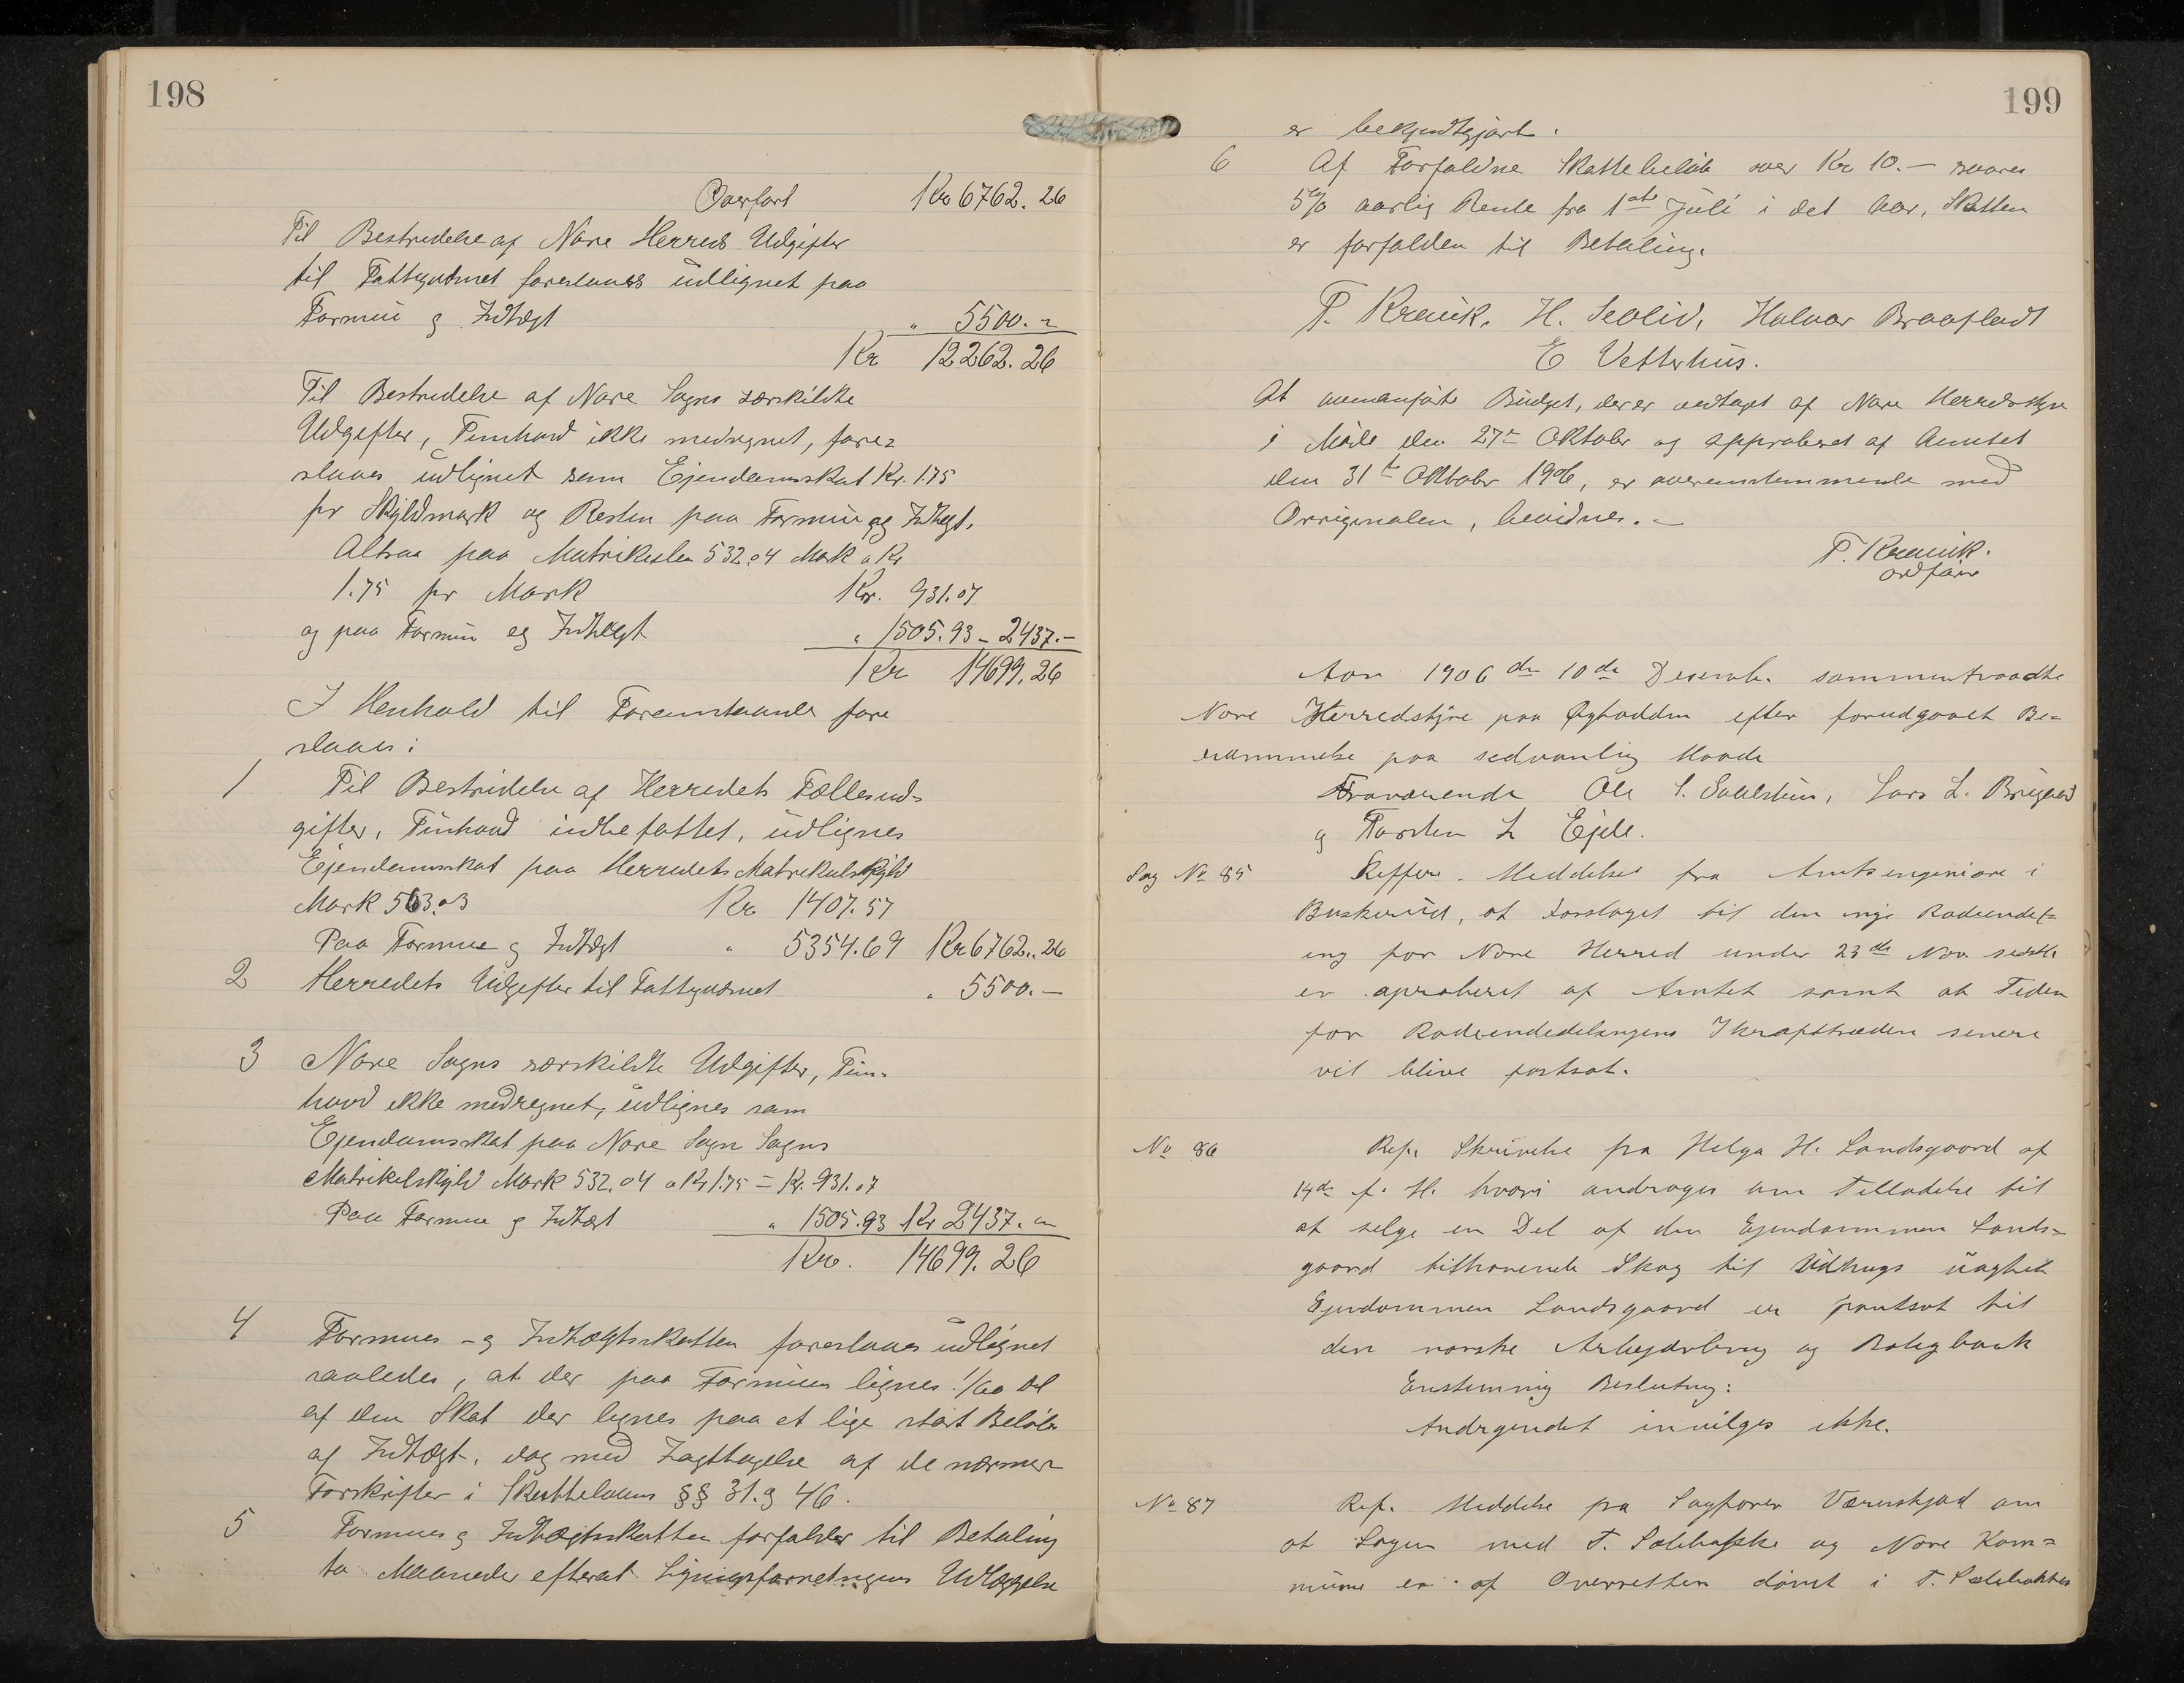 198
Overført Kr 6762.26
Til Bestridelse af Nore Herreds Udgifter
til Fattigvæsnet foreslaaes udlignet paa
Formue og Indtægt " 5500.-
Kr 12262.26
Til Bestridelse af Nore Sogns særskildte
Udgifter, Tunhovd ikke medregnet, fore=
slaaes udlignet som Ejendomsskat Kr. 1.75
pr Skyldmark og Resten paa Formue og Indtægt.
Altsaa paa Matrikeslen 532.04 Mark a Kr
1.75 pr Mark Kr. 931.07
og paa Formue og Indtægt " 1505.93 - 2437.-
Kr 14699.26
I Henhold til Foranstaaende fore
slaaes:
1 Til Bestridelse af Herredets Fællesud=
gifter, Tunhovd indbefattet, udlignes
Ejendomsskat paa Herredets Matrikulskyld
Mark 563.03 Kr 1407.57
Paa Formue og Indtægt " 5354.69 Kr 6762.26
2 Herredets Udgifter til Fattigvæsnet " 5500.-
3 Nore Sogns særskildte Udgifter, Tun=
hovd ikke medregnet, udlignes som
Ejendomsskat paa Nore Sogn Sogns
Matrikelskyld Mark 532.04 a Kr 1.75 = Kr. 931.07
Paa Formue og Indtægt " 1505.93 Kr 2437.-
Kr. 14699.26
4 Formues- og Indtægtsskatten foreslaaes udlignet
saaledes, at der paa Formuen lignes 1/60 Del
af den Skat der lignes paa et lige stort Beløb
af Indtægt, dog med Iagttagelse af de nærmere
Forskrifter i Skattelovens §§ 31 og 46.
5 Formues og Indtægtsskatten forfalder til Betaling
to Maaneder efterat Ligningsforretningens Udlæggelse
199
er bekjendtgjort.
6 Af Forfaldne Skattebeløb over Kr 10.- svares
5% aarlig Rente fra 1ste Juli i det Aar, Skatten
er forfalden til Betaling.
T. Kravik. H. Seolid, Halvor Braafladt
E Vetterhus.
At ovenanførte Budget, der er vedtaget af Nore Herredsstyre
i Møde den 27de Oktober og approberet af Amtet
den 31te Oktober 1906, er overensstemmende med
Orriginalen, bevidnes.-
T. Kravik.
ordfører
Aar 1906 den 10de Decemb. sammentraadte
Nore Herredstyre paa Øyhodden efter forudgaaet Be=
rammelse paa sedvanlig Maade
Fraværende Ole S. Lars L.
og Torsten L Ejde.
Sag No 85 Reffere. Meddelse fra Amtsingeniøre i
Buskerud, at Forslaget til den nye Rodeindel=
ing for Nore Herred under 23de Nov. sidstl.
er aproberet af Amtet samt at Tiden
for Rodeinddelingens Ikrafttræden senere
vil blive fastsat.
No 86 Ref. Skrivelse fra Helga H. Landsgaard af
14de f. M. hvori androges om Tilladelse til
at selge en Del af den Ejendommen Lands=
gaard tilhørende Skog til Udhugs uagtet
Ejendommen Landsgaard er pantsat til
den norske Arbejderbrug og Boligbank
Enstemmig Beslutning:
Andragendet invilges ikke.
No 87 Ref. Meddelse fra Sagfører Værnskjold om
at Sagen med T. og Nore Kom=
mune er af Overretten dømt i T.